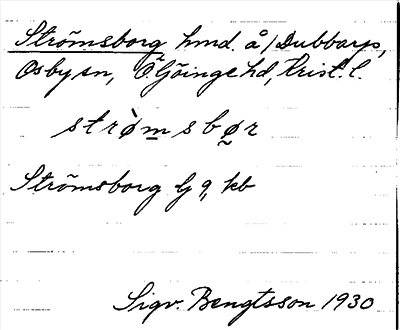 Strömsborg hmd. å/Dubbarp,
Osby sn, Ö. Göinge hd, Krist. l.
strø̀m̲sbø̰r
Strömsborg lg 9, kb
Sigv. Bengtsson 1930